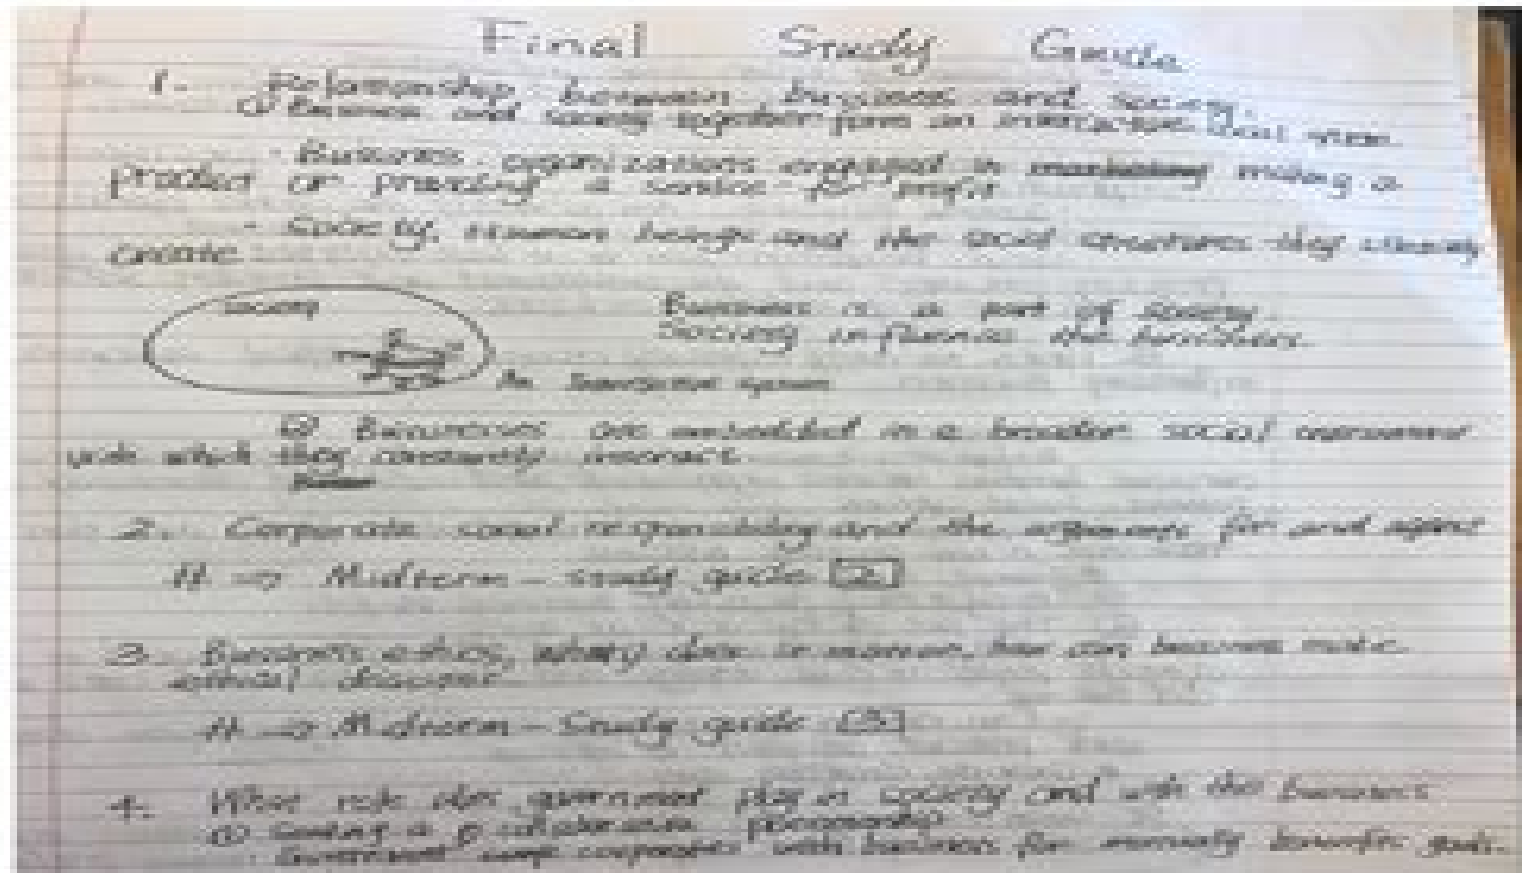 Final Study Guide
1. Relationship between business and society.
① Business and society together form an interactive social system.
- Business organizations engaged in making a
product or providing a service for profit
- Society. Human beings and the social structures they
create
Society
Business is a part of society.
Society influences the
An interactive system
② Businesses are embedded in a broader social environment
with which they constantly interact.
2. Corporate social responsibility and the arguments for and against
⇒ Midterm - study guide 2
3. Business ethics, why does it matter, how can business make
ethical
⇒ Midterm - Study guide 3
4. What role does government play in society and with the business
① a collaborative partnership
- Government corporates with business for mutually benefits goals.